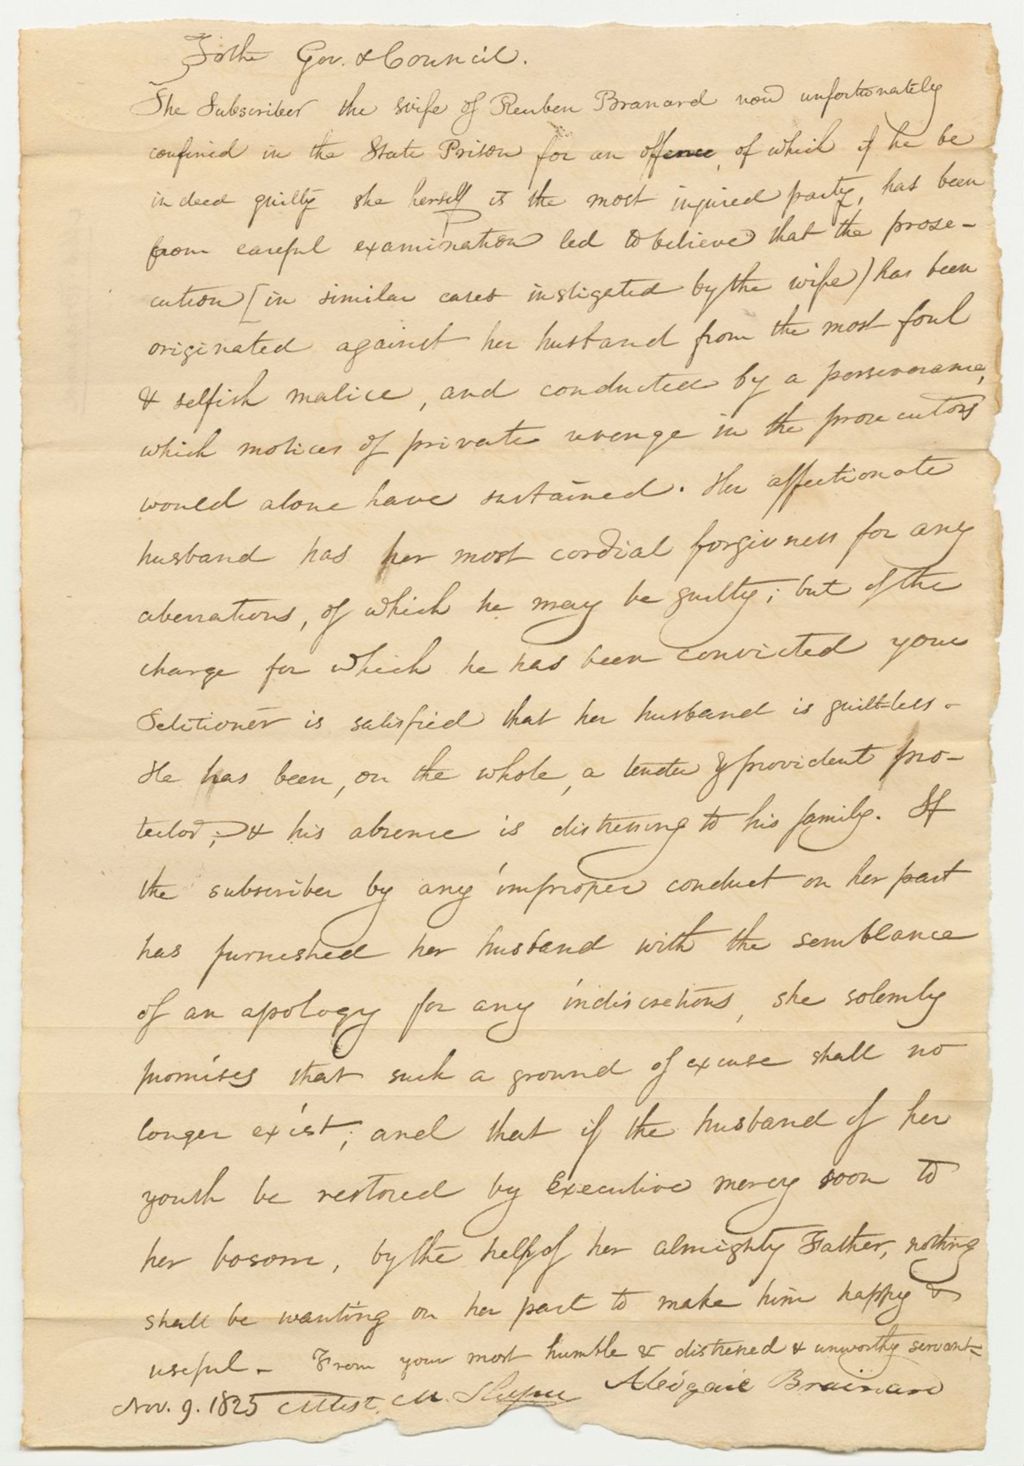 To the Gov. & Council.
The Subscriber the wife of Reuben Branard now unfortunately
confined in the State Prison for an offence, of which if he be
indeed guilty she herself is the most injured party, has been
from careful examination led to believe that the prose-
cution [in similar cases instigated by the wife) has been
originated against her husband from the most foul
& selfish malice, and conducted by a perseverance,
which motives of private revenge in the prosecutors
would alone have sustained. Her affectionate
husband has her most cordial forgivness for any
aberrations, of which he may be guilty; but of the
charge for which he has been convicted your
Petitioner is satisfied that her husband is guiltless.
He has been, on the whole, a tender & provident pro-
tector; & his absence is distressing to his family. If
the subscriber by any improper conduct on her part
has furnished her husband with the semblance
of an apology for any indiscretions, she solemly
promises that such a ground of excuse shall no
longer exist; and that if the husband of her
youth be restored by Executive mercy soon to
her bosom, by the help of her almighty Father, nothing
shall be wanting on her part to make him happy &
useful - From your most humble & distressed & unworthy servant
Nov. 9. 1825 Attest. M. Abigail Brainard